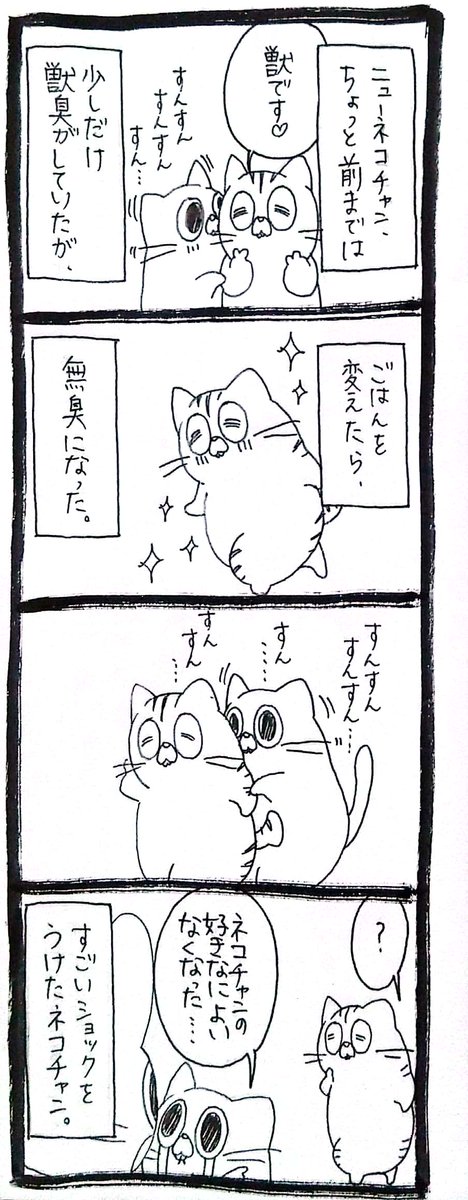 ニューネコチャン、
ちょっと前までは
獣です♡
すんすん
すんすん
すん…
少しだけ
獣臭がしていたが、
ごはんを
変えたら、
無臭になった。
すんすん
すんすん…
すん
……
すん
すん
……
?
ネコチャンの
好きなによい
なくなった……
すごいショックを
うけたネコチャン。